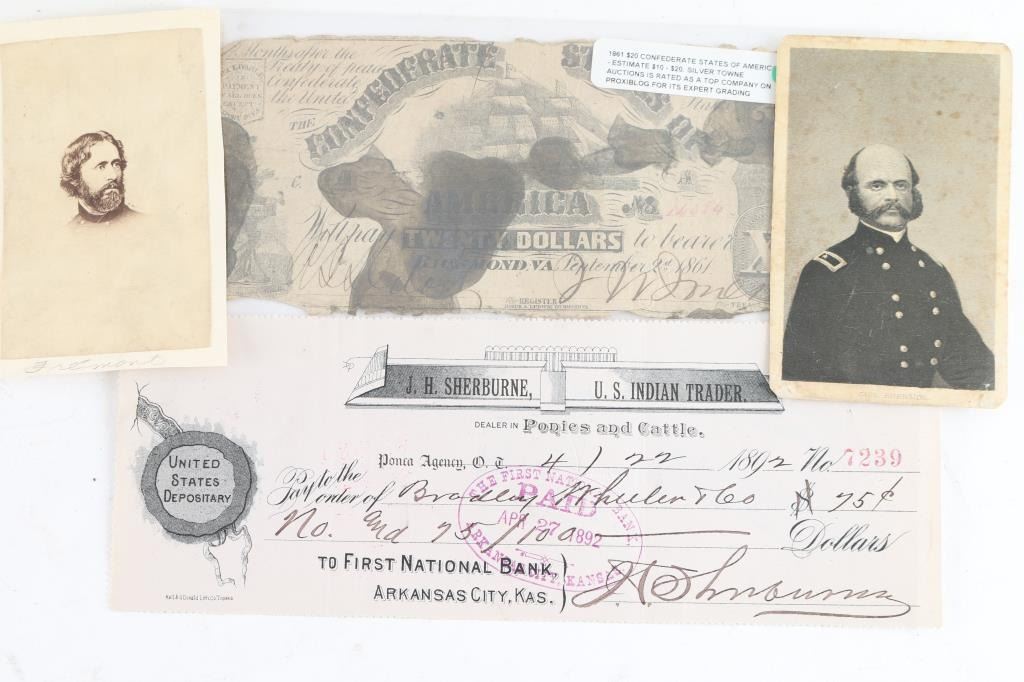 Fremont
Months after the
Treaty of peace
Confederate
the United
THE
CONFEDERATE
AMERICA No.
Will pay TWENTY DOLLARS to bearer
RICHMOND, VA September 2d 1861
REGISTER
1861 $20 CONFEDERATE STATES OF AMERICA
- ESTIMATE $10 - $20. SILVER TOWNE
AUCTIONS IS RATED AS A TOP COMPANY ON
PROXIBLOG FOR ITS EXPERT GRADING
J. H. SHERBURNE, U. S. INDIAN TRADER.
DEALER IN Ponies and Cattle.
Ponca Agency, O. T. 4/22 1892 No. 7239
Pay to the
order of Bradley Wheeler & Co $ 75¢
No. and 75/100 Dollars
UNITED
STATES
DEPOSITARY
THE FIRST NATIONAL BANK
PAID
APR 27 1892
ARKANSAS CITY, KANSAS
TO FIRST NATIONAL BANK,
ARKANSAS CITY, KAS.
J. H. Sherburne